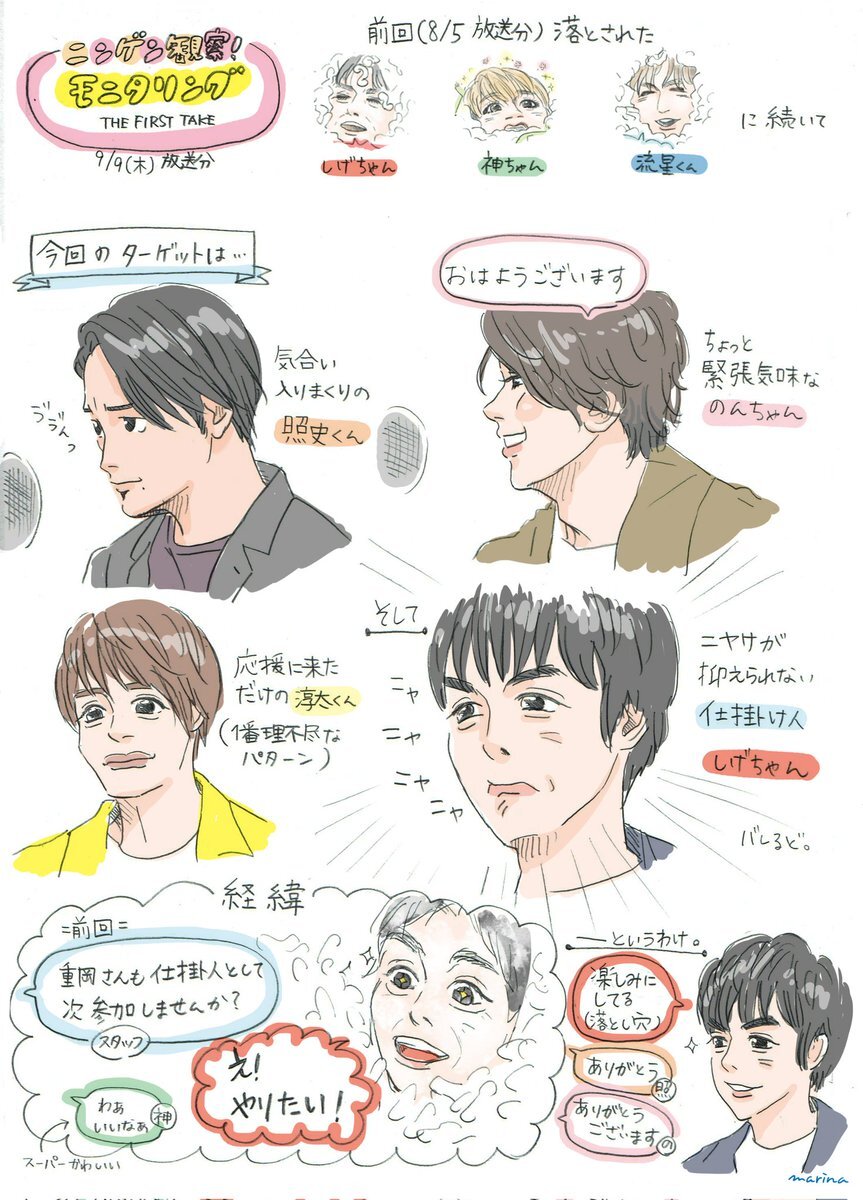 ニンゲン観察!
モニタリング
THE FIRST TAKE
9/9(木)放送分
前回(8/5放送分)落とされた
しげちゃん
神ちゃん
流星くん
に続いて
今回のターゲットは…
気合い
入りまくりの
照史くん
おはようございます
ちょっと
緊張気味な
のんちゃん
応援に来た
だけの淳太くん
(1番理不尽な
パターン)
そして
ニヤ
ニヤ
ニヤ
ニヤ
ニヤけが
抑えられない
仕掛け人
しげちゃん
バレるど。
経緯
=前回=
重岡さんも仕掛人として
次参加しませんか?
スタッフ
え!
やりたい!
わぁ
いいなぁ
神
スーパーかわいい
―というわけ。
楽しみに
してる
(落とし穴)
ありがとう
照
ありがとう
ございます
の
marina